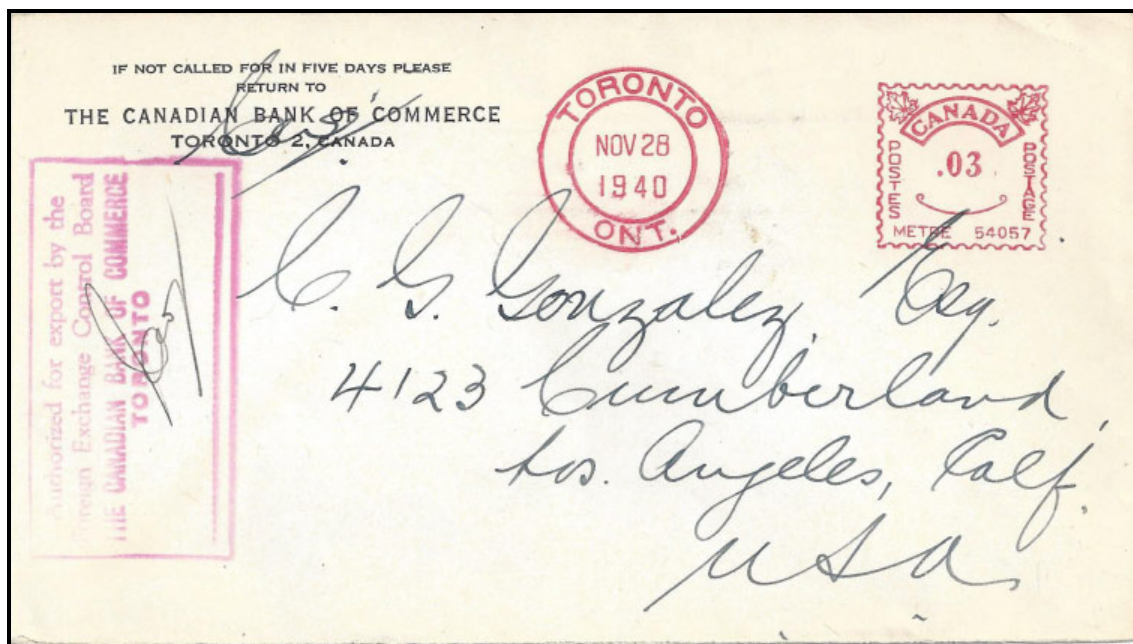 IF NOT CALLED FOR IN FIVE DAYS PLEASE
RETURN TO
THE CANADIAN BANK OF COMMERCE
TORONTO 2, CANADA
TORONTO
NOV 28
1940
ONT.
CANADA
POSTES
.03
POSTAGE
METRE 54057
Authorized for export by the
Foreign Exchange Control Board
THE CANADIAN BANK OF COMMERCE
TORONTO
C. G. Gonzalez, Esq.
4123 Cumberland,
Los. Angeles, Calf.
USA